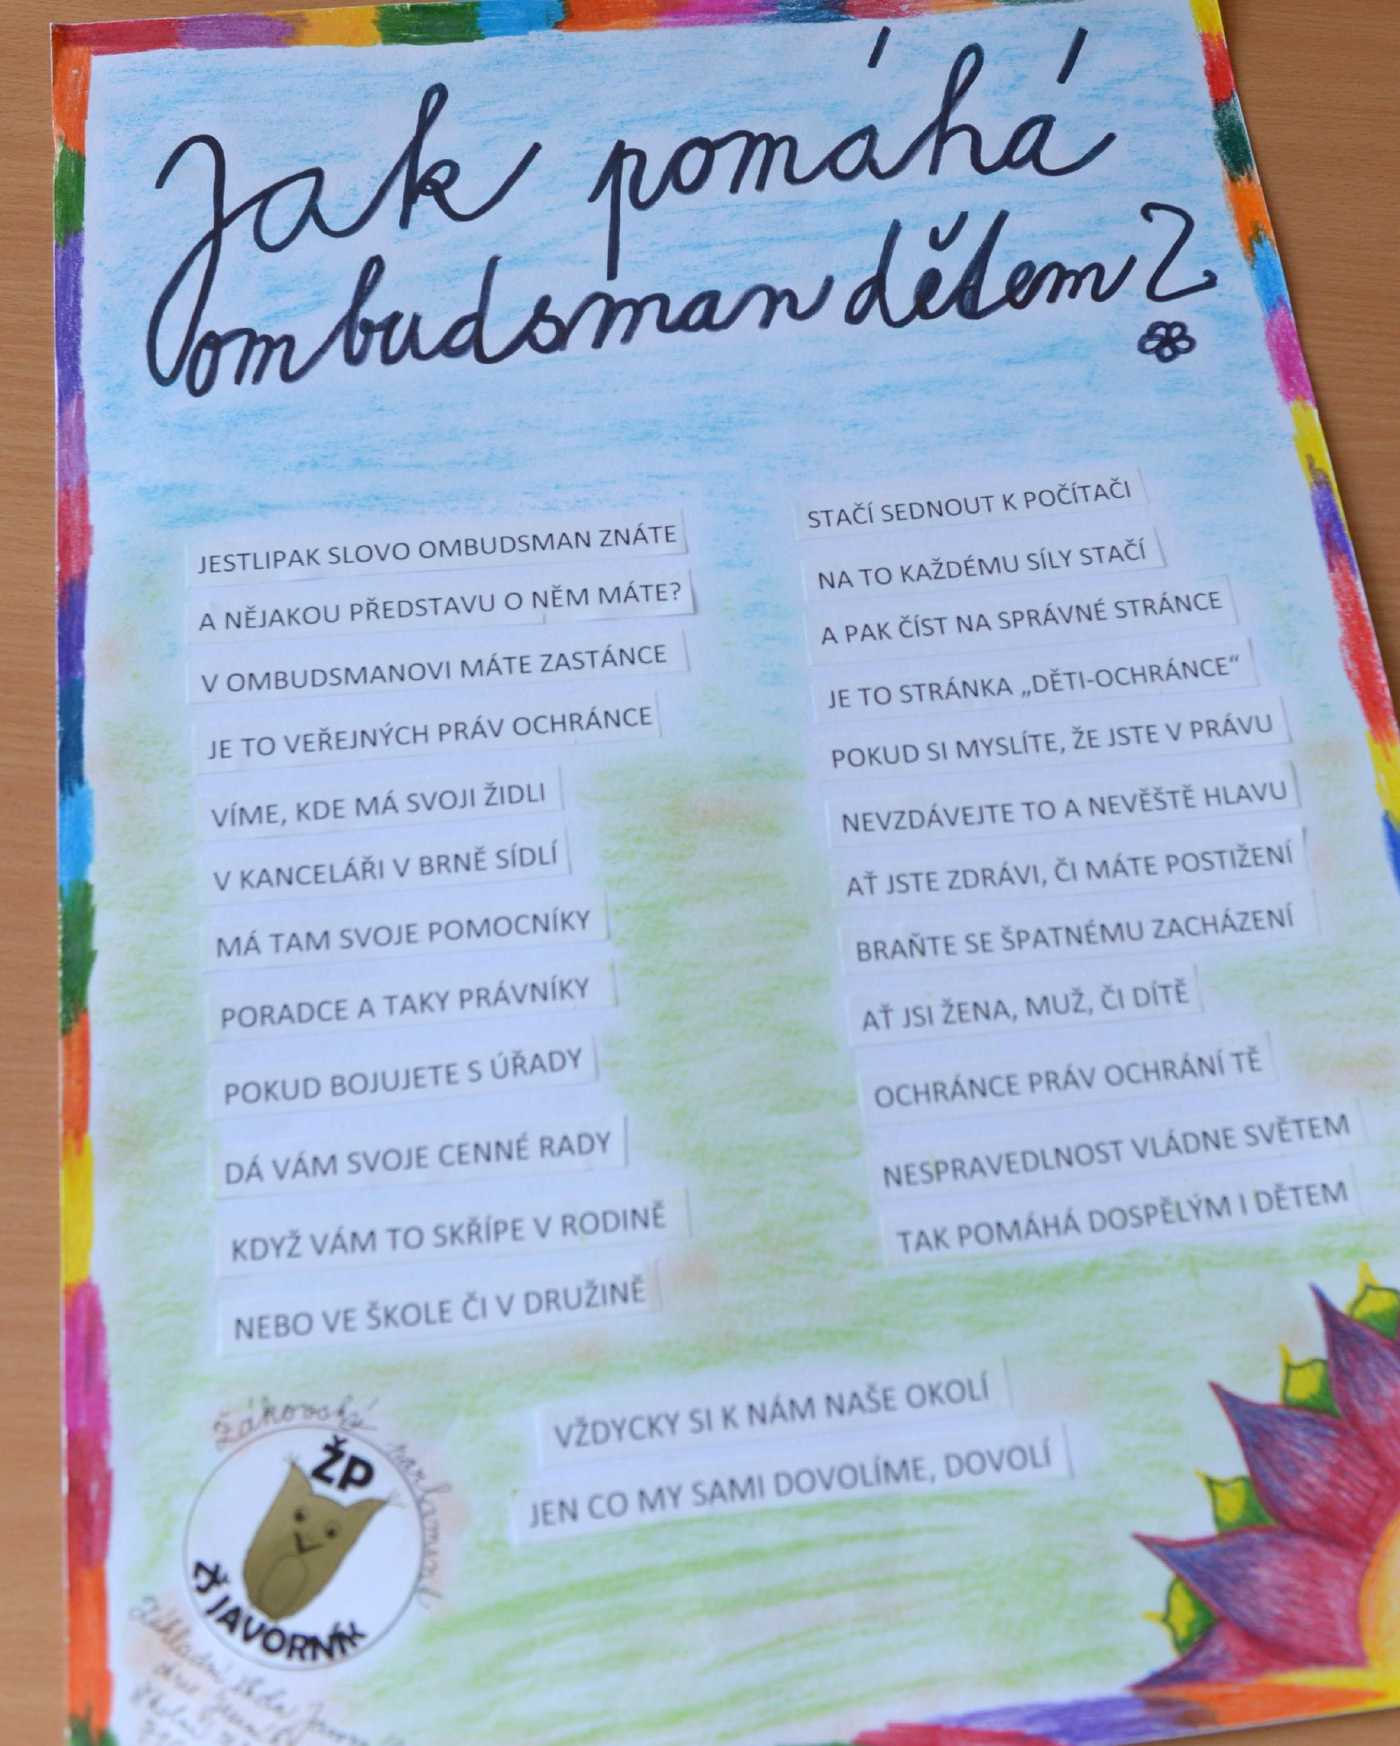 Jak pomáhá
ombudsman dětem?
JESTLIPAK SLOVO OMBUDSMAN ZNÁTE
A NĚJAKOU PŘEDSTAVU O NĚM MÁTE?
V OMBUDSMANOVI MÁTE ZASTÁNCE
JE TO VEŘEJNÝCH PRÁV OCHRÁNCE
VÍME, KDE MÁ SVOJI ŽIDLI
V KANCELÁŘI V BRNĚ SÍDLÍ
MÁ TAM SVOJE POMOCNÍKY
PORADCE A TAKY PRÁVNÍKY
POKUD BOJUJETE S ÚŘADY
DÁ VÁM SVOJE CENNÉ RADY
KDYŽ VÁM TO SKŘÍPE V RODINĚ
NEBO VE ŠKOLE ČI V DRUŽINĚ
STAČÍ SEDNOUT K POČÍTAČI
NA TO KAŽDÉMU SÍLY STAČÍ
A PAK ČÍST NA SPRÁVNÉ STRÁNCE
JE TO STRÁNKA „DĚTI-OCHRÁNCE“
POKUD SI MYSLÍTE, ŽE JSTE V PRÁVU
NEVZDÁVEJTE TO A NEVĚŠTĚ HLAVU
AŤ JSTE ZDRÁVI, ČI MÁTE POSTIŽENÍ
BRAŇTE SE ŠPATNÉMU ZACHÁZENÍ
AŤ JSI ŽENA, MUŽ, ČI DÍTĚ
OCHRÁNCE PRÁV OCHRÁNÍ TĚ
NESPRAVEDLNOST VLÁDNE SVĚTEM
TAK POMÁHÁ DOSPĚLÝM I DĚTEM
VŽDYCKY SI K NÁM NAŠE OKOLÍ
JEN CO MY SAMI DOVOLÍME, DOVOLÍ
Žákovský parlament
ŽP
ZŠ JAVORNÍK
Základní škola